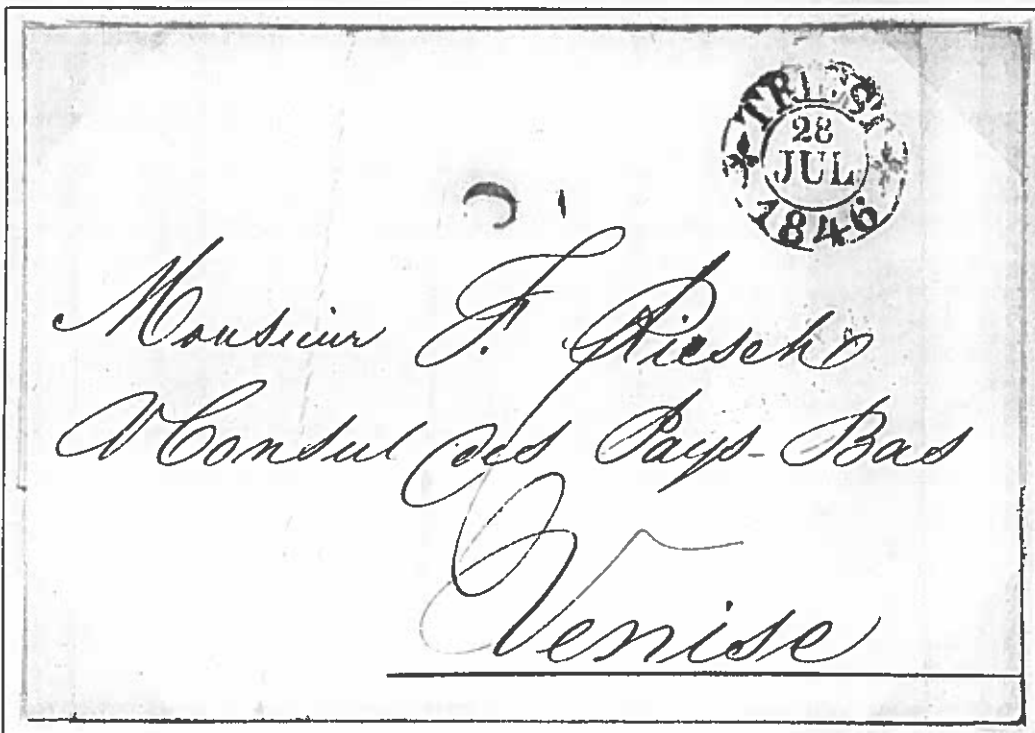 TRIEST
28
JUL
1846
Monsieur F. Riesch
Consul des Pays-Bas
Venise